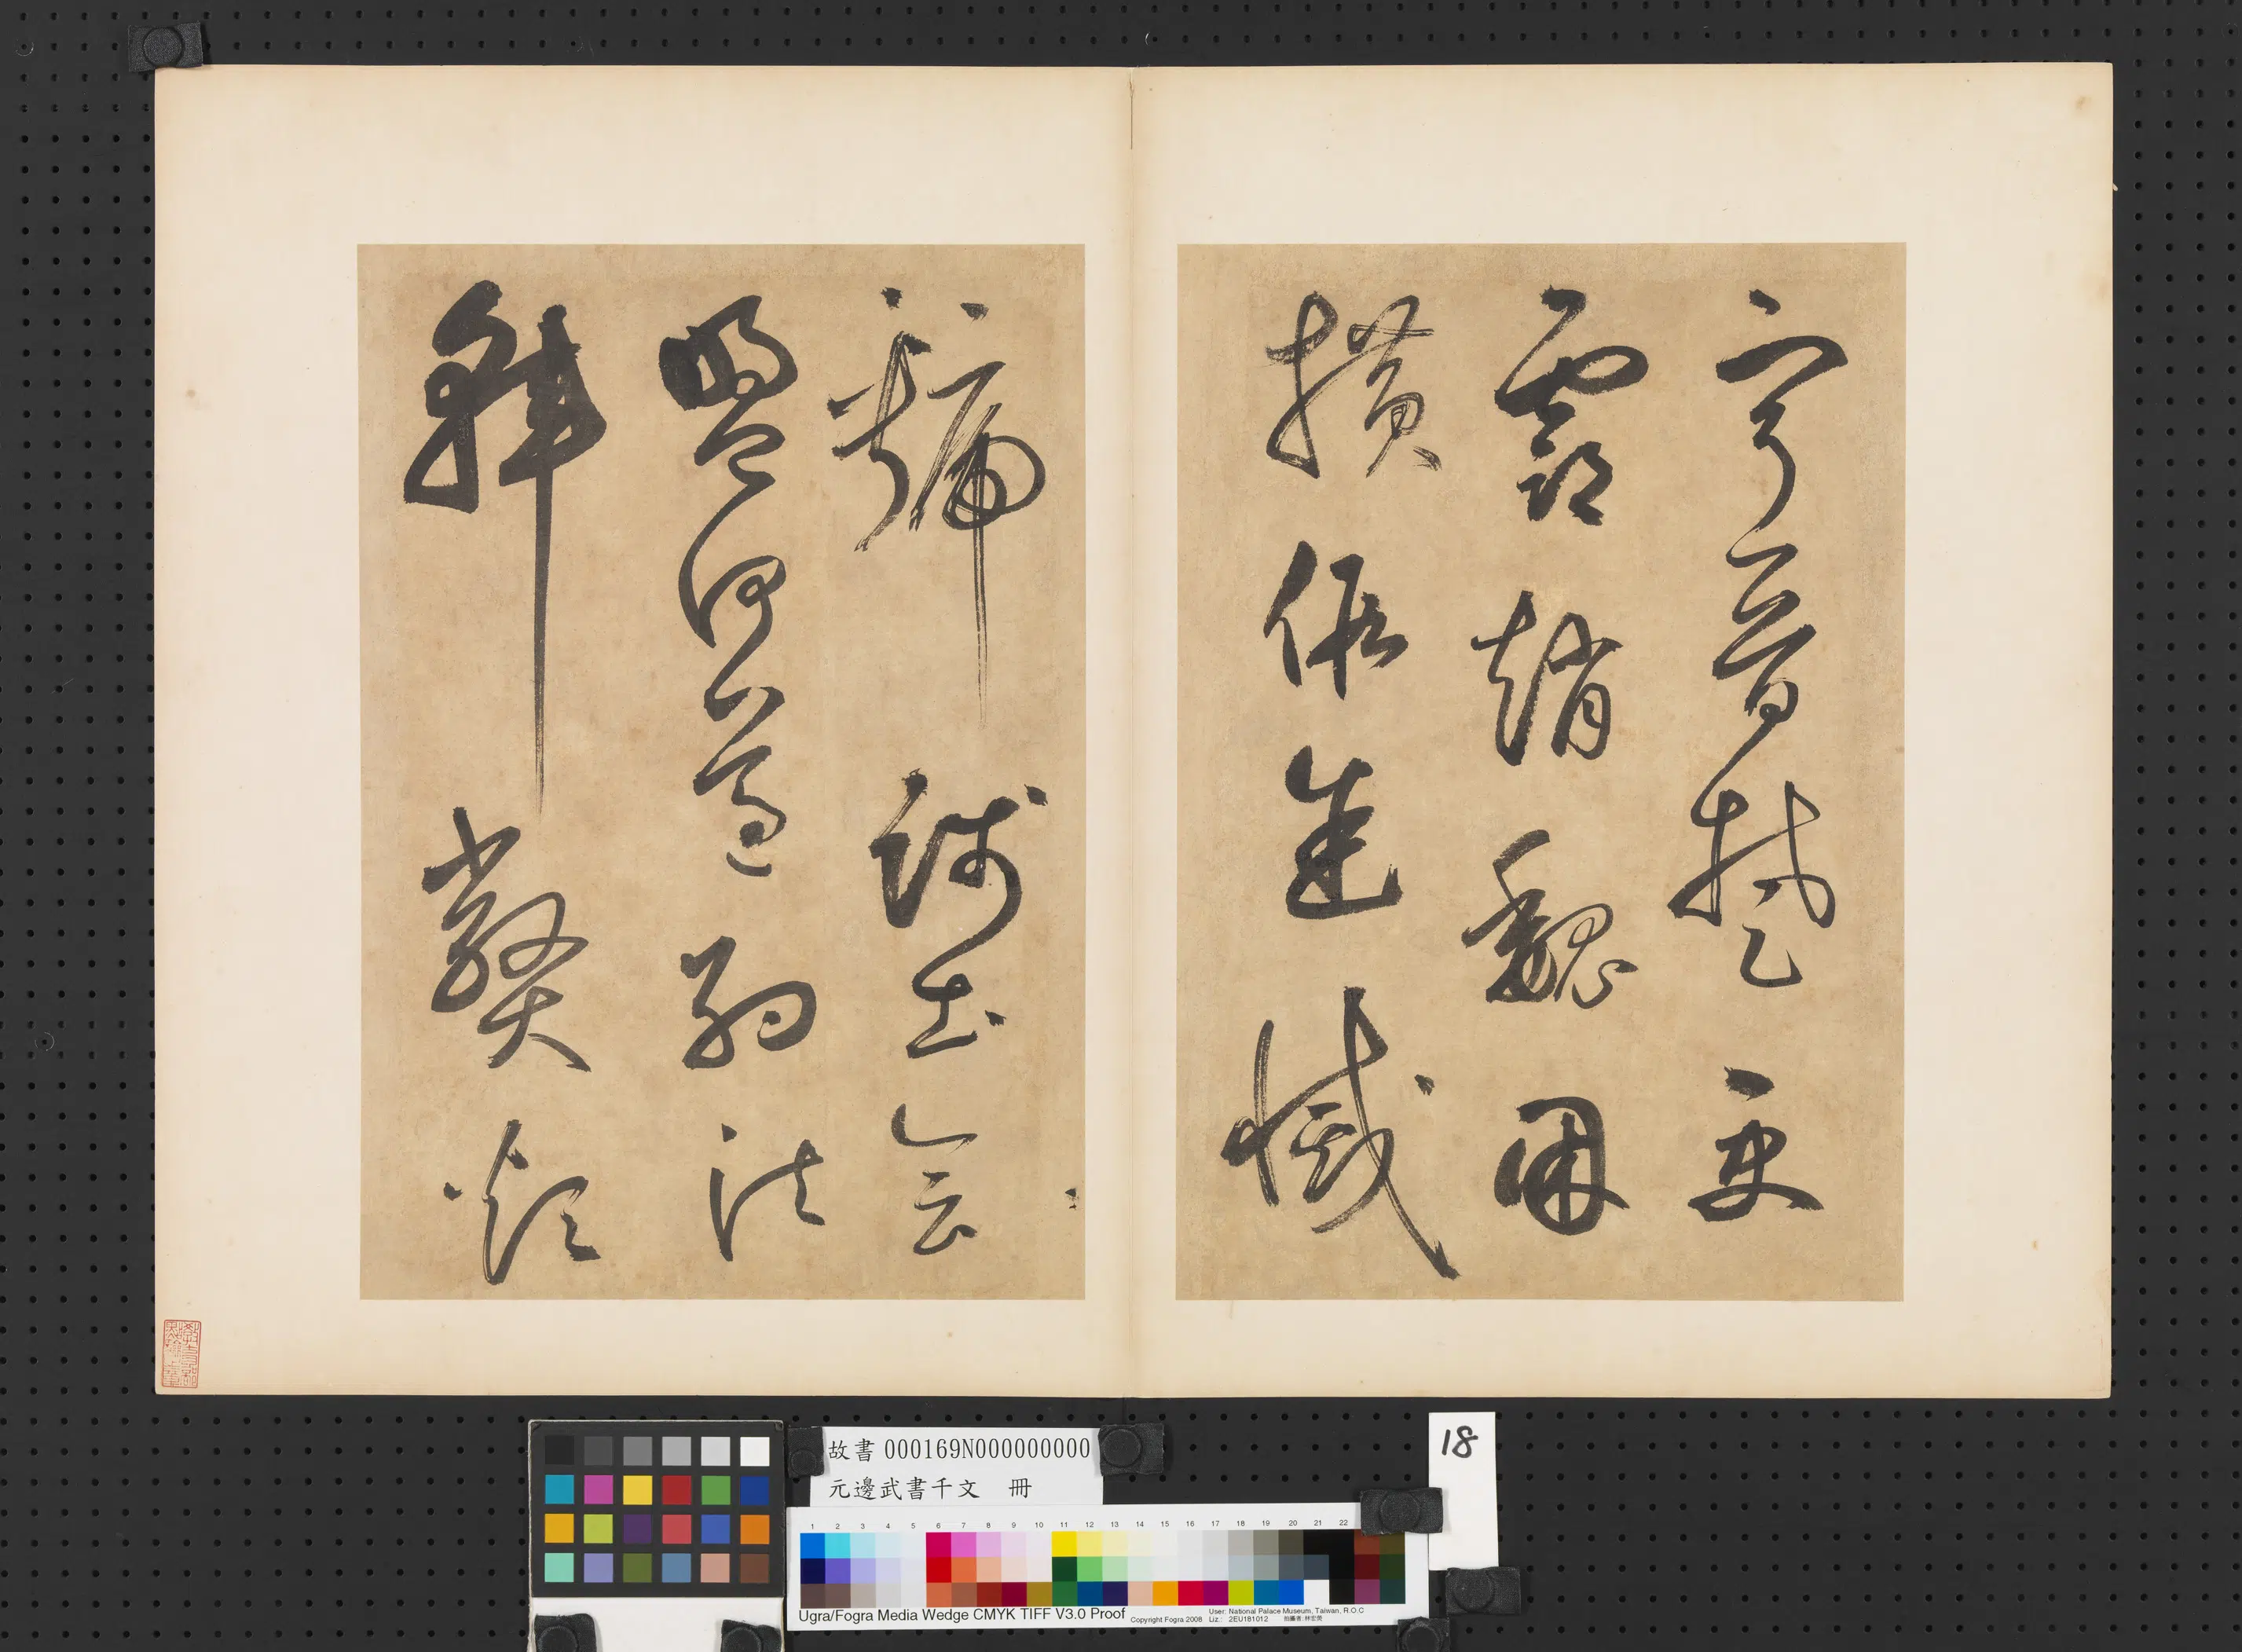 寧晉楚更
霸趙魏困
橫假途滅
虢踐土會
盟何遵約法
韓弊煩
故書 000169N000000000
元邊武書千文 冊
18
1 2 3 4 5 6 7 8 9 10 11 12 13 14 15 16 17 18 19 20 21 22
Ugra/Fogra Media Wedge CMYK TIFF V3.0 Proof
Copyright Fogra 2008
User: National Palace Museum, Taiwan, R.O.C
Liz.: 2EU181012